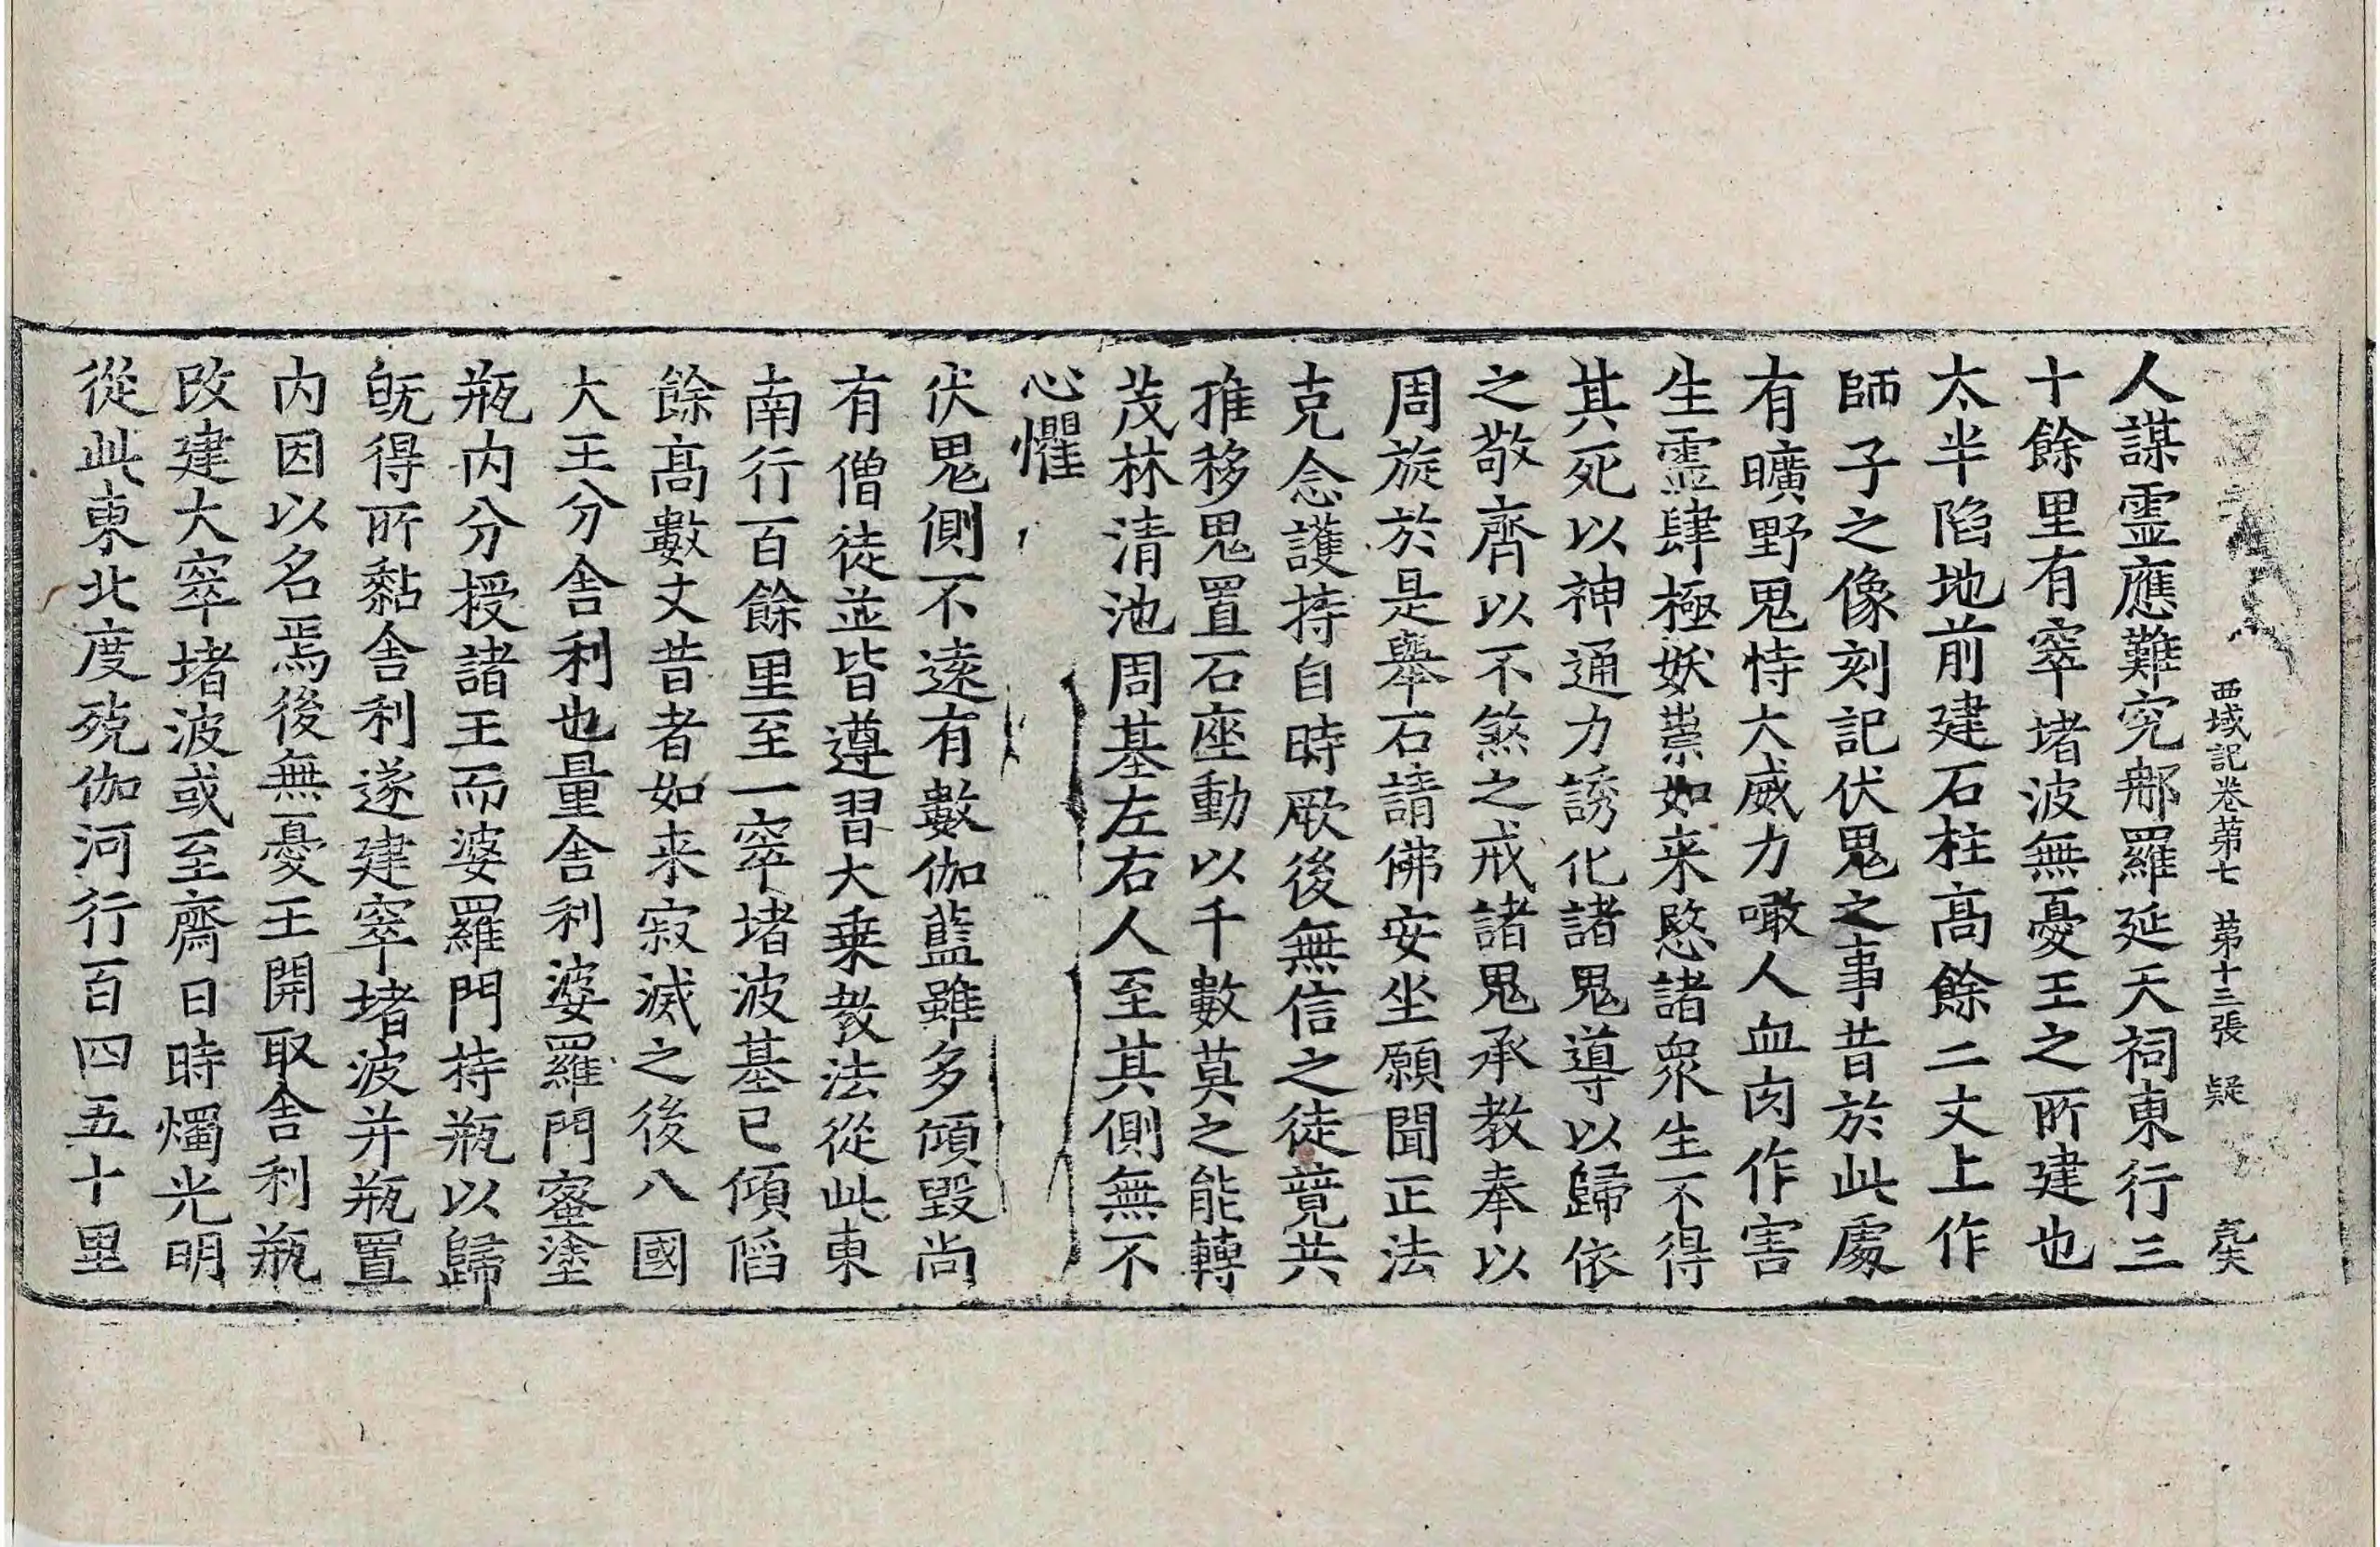 西域記卷苐七 苐十三張 疑
人謀霊應難究那羅延天祠東行三
十餘里有窣堵波無憂王之所建也
太半陷地前建石柱高餘二丈上作
師子之像刻記伏鬼之事昔於此處
有曠野鬼恃大威力噉人血肉作害
生霊肆極妖祟如来愍諸衆生不得
其死以神通力誘化諸鬼導以歸依
之敬齊以不煞之戒諸鬼承教奉以
周旋於是舉石請佛安坐願聞正法
克念護持自時厥後無信之徒竟共
推移鬼置石座動以千數莫之能轉
茂林清池周基左右人至其側無不
心懼
伏鬼側不遠有數伽藍雖多傾毀尚
有僧徒並皆遵習大乗教法從此東
南行百餘里至一窣堵波基已傾陷
餘高數丈昔者如来寂滅之後八國
大王分舎利也量舎利婆羅門蜜塗
瓶内分授諸王而婆羅門持瓶以歸
既得所黏舎利遂建窣堵波并瓶置
内因以名焉後無憂王開取舎利瓶
改建大窣堵波或至齋日時燭光明
從此東北度殑伽河行百四五十里